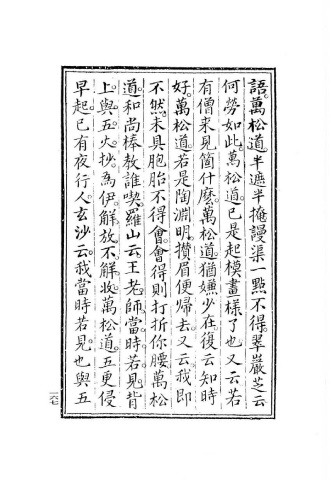 語萬松道半遮半掩謾渠一點不得翠巖芝云
何勞如此萬松道已是起模畫樣了也又云若
有僧來見箇什麽萬松道猶嫌少在後云知時
好萬松道若是陶淵明攢眉便歸去又云我即
不然未具胞胎不得會會得則打折你腰萬松
道和尚棒教誰喫羅山云王老師當時若見背
上與五火抄爲伊解放不解收萬松道五更侵
早起已有夜行人玄沙云我當時若見也與五
一六七